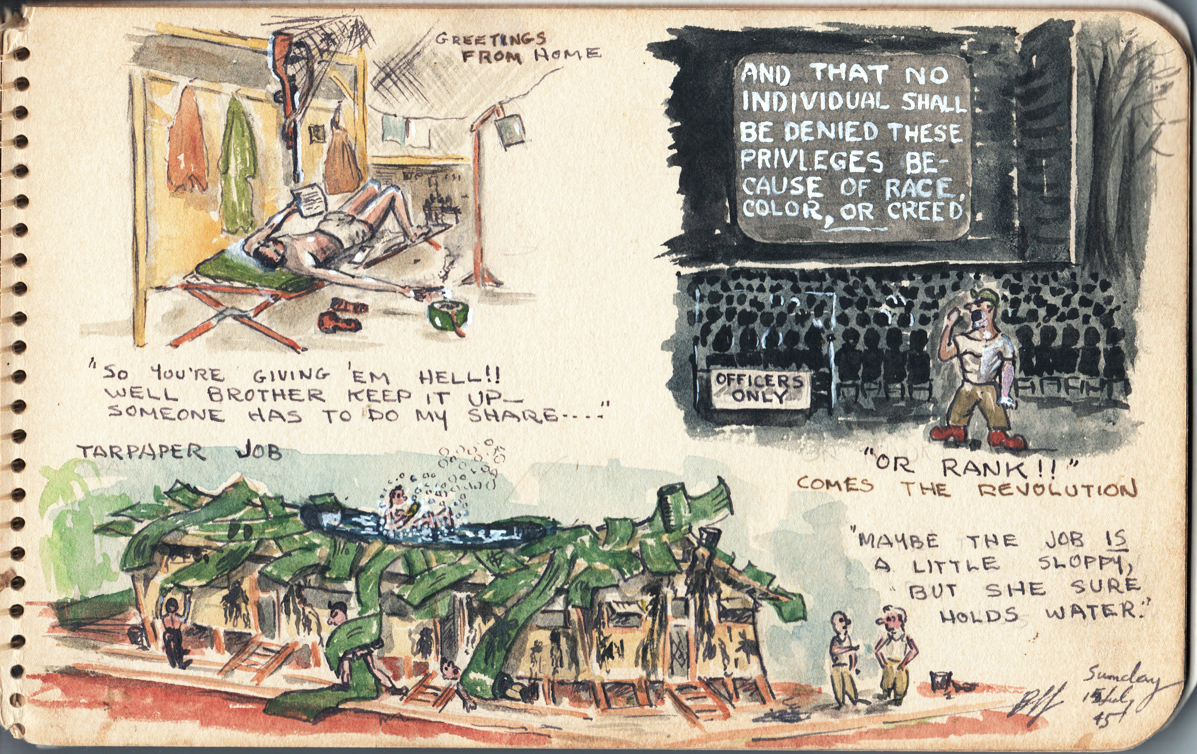 GREETINGS
FROM HOME
"SO YOU'RE GIVING 'EM HELL!!
WELL BROTHER KEEP IT UP—
SOMEONE HAS TO DO MY SHARE----"
AND THAT NO
INDIVIDUAL SHALL
BE DENIED THESE
PRIVLEGES BE-
CAUSE OF RACE,
COLOR, OR CREED
OFFICERS
ONLY
"OR RANK!!"
COMES THE REVOLUTION
TARPAPER JOB
"MAYBE THE JOB IS
A LITTLE SLOPPY,
BUT SHE SURE
HOLDS WATER."
Sunday
15 July
45